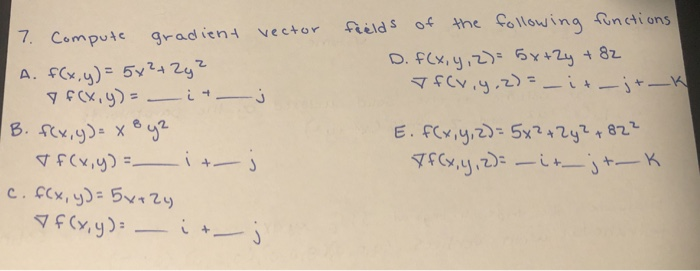 7. Compute gradient vector fields of the following functions
A. f(x,y) = 5x²+2y²
∇f(x,y) = __ i + __ j
B. f(x,y) = x⁸y²
∇f(x,y) = __ i + __ j
C. f(x,y) = 5x+2y
∇f(x,y) = __ i + __ j
D. f(x,y,z) = 5x+2y+8z
∇f(x,y,z) = __ i + __ j + __ K
E. f(x,y,z) = 5x²+2y²+8z²
∇f(x,y,z) = __ i + __ j + __ K